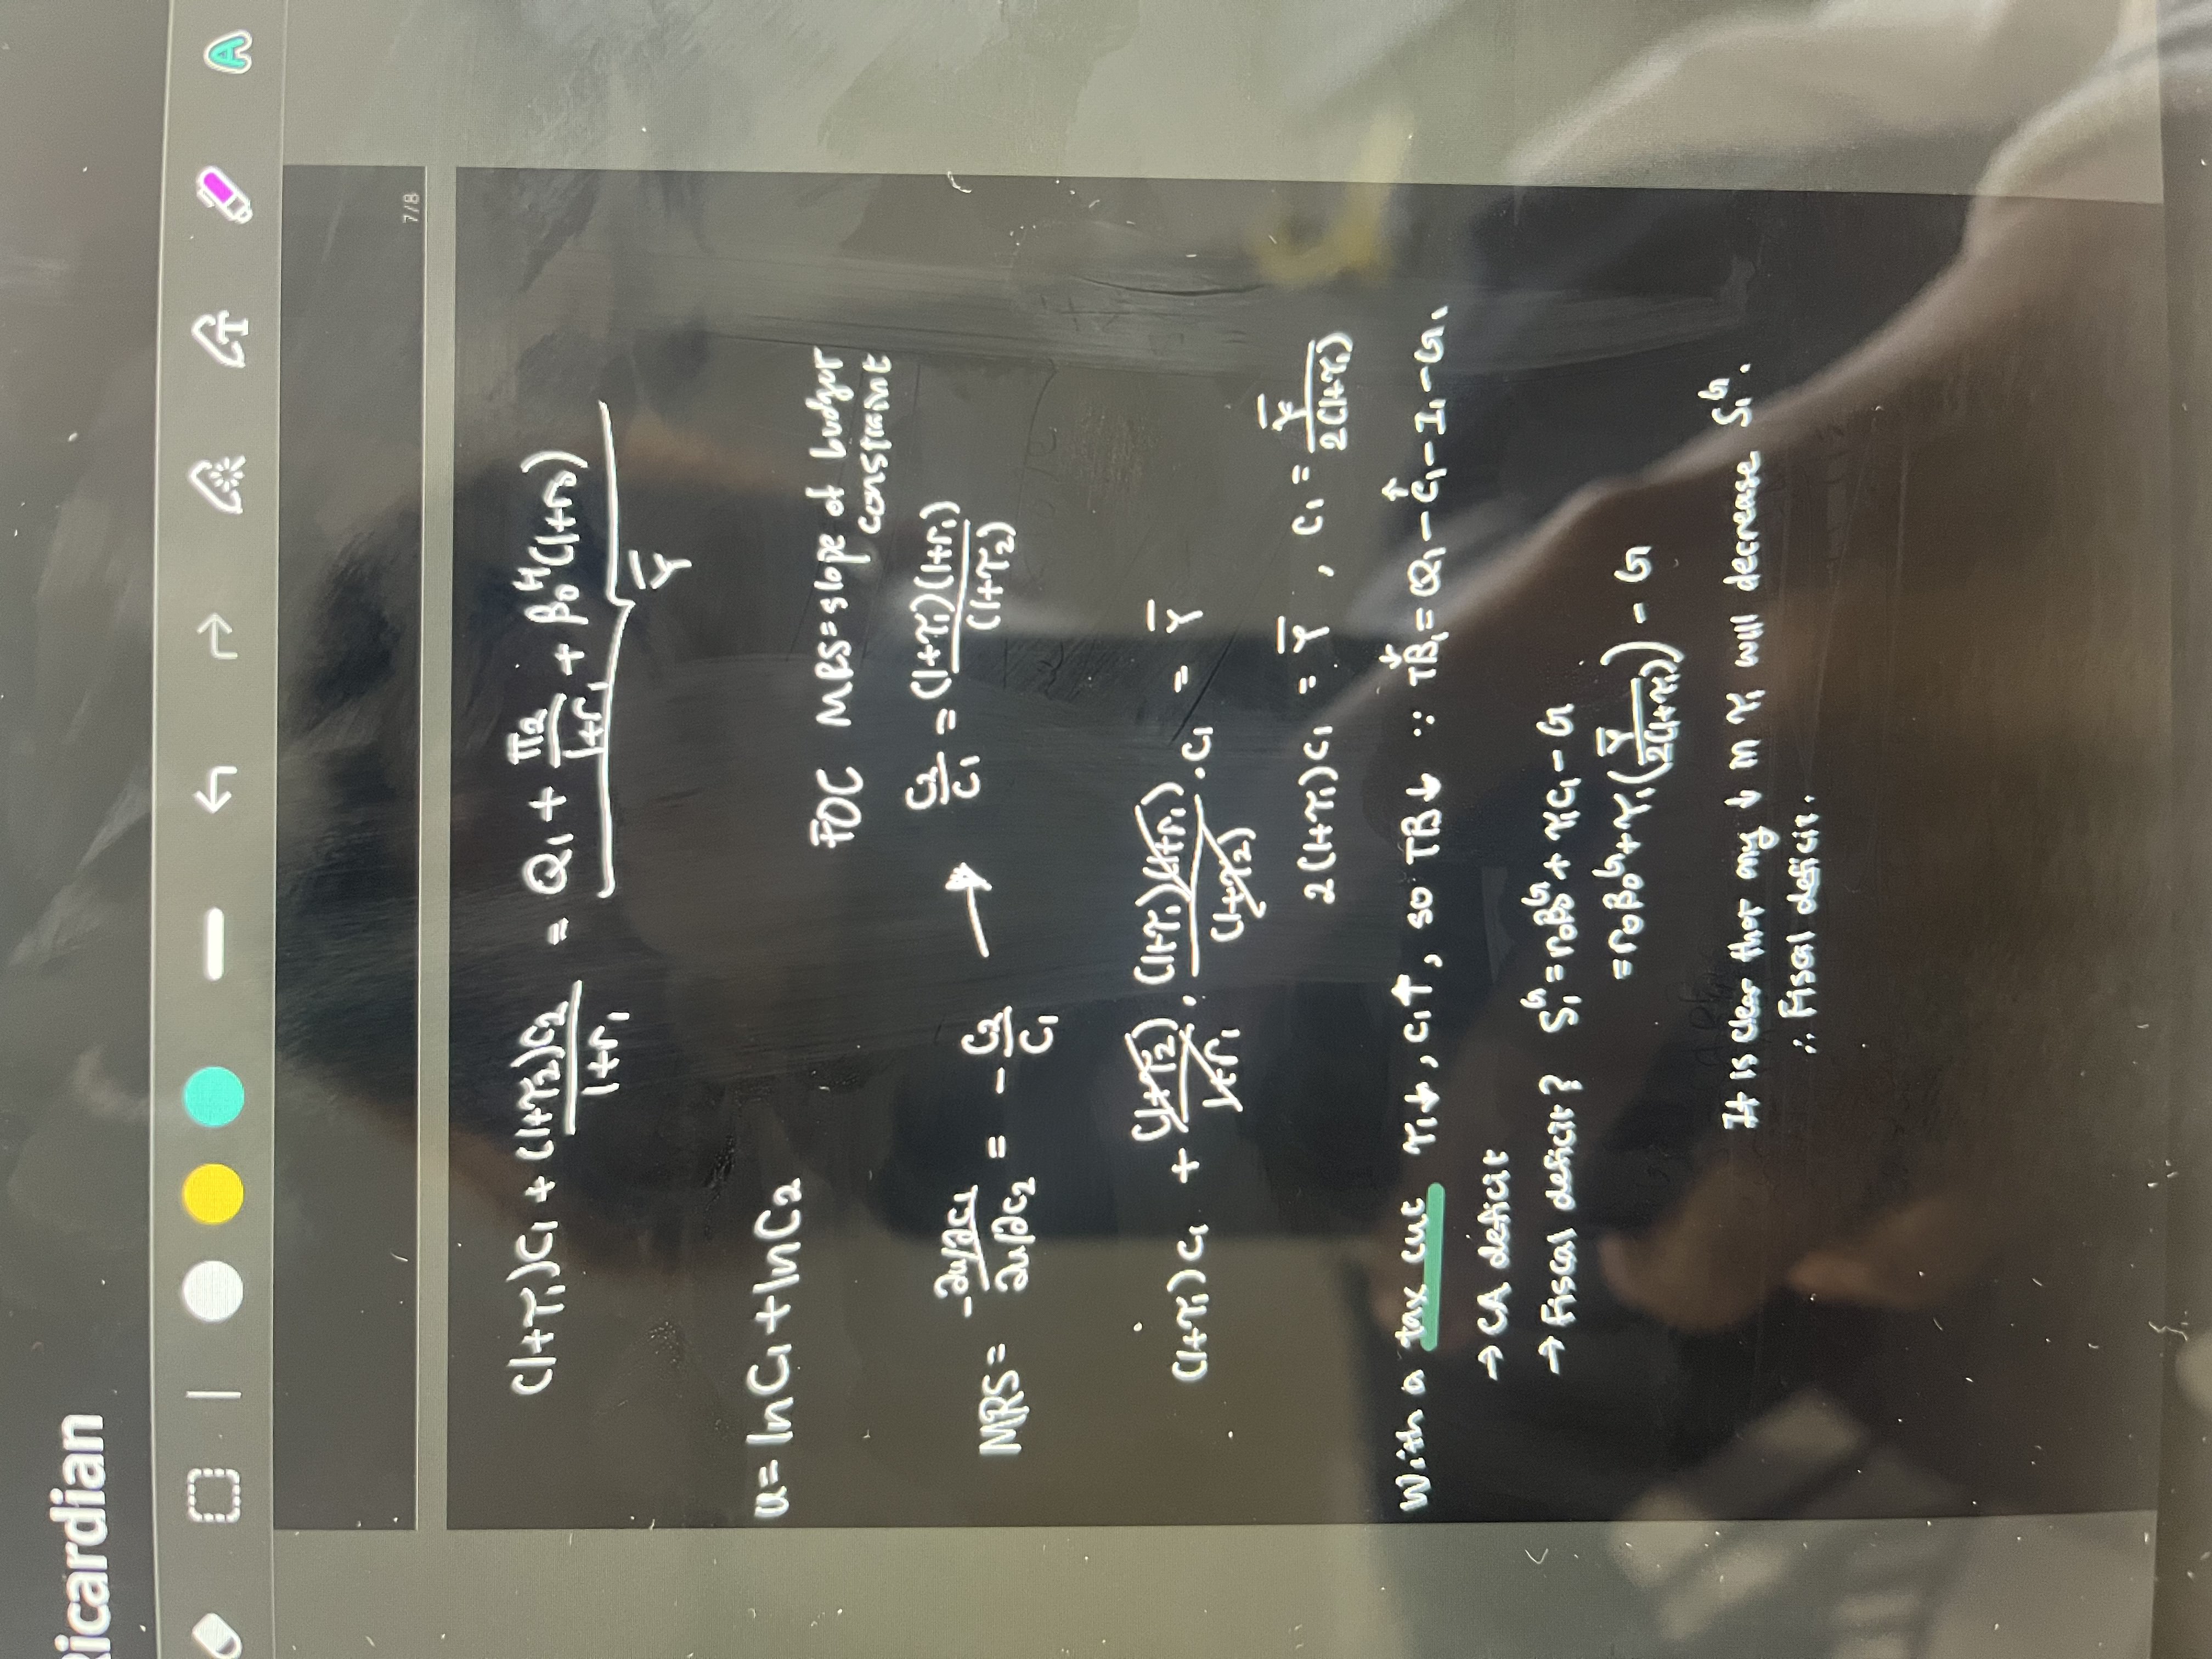 Ricardian
7/8
(1+τ₁)C₁ + (1+τ₂)C₂/1+r₁ = Q₁ + π₂/1+r₁ + β₀ᴴ(1+r₀)
Ȳ
u = lnC₁ + lnC₂
FOC MRS = slope of budget constraint
MRS = -∂u/∂C₁ / ∂u/∂C₂ = - C₂/C₁ → C₂/C₁ = (1+τ₁)(1+r₁)/(1+τ₂)
(1+τ₁)C₁ + (1+τ₂)/1+r₁ · (1+τ₁)(1+r₁)/(1+τ₂) · C₁ = Ȳ
2(1+τ₁)C₁ = Ȳ , C₁ = Ȳ/2(1+τ₁)
With a tax cut τ₁↓, C₁↑, so TB↓ ∵ TB₁↓ = Q₁ - C₁↑ - I₁ - G₁.
→ CA deficit
→ Fiscal deficit? S₁ᴳ = r₀β₀ᴳ + τ₁C₁ - G
= r₀β₀ᴳ + τ₁(Ȳ/2(1+τ₁)) - G
It is clear that any ↓ in τ₁ will decrease S₁ᴳ.
∴ Fiscal deficit.